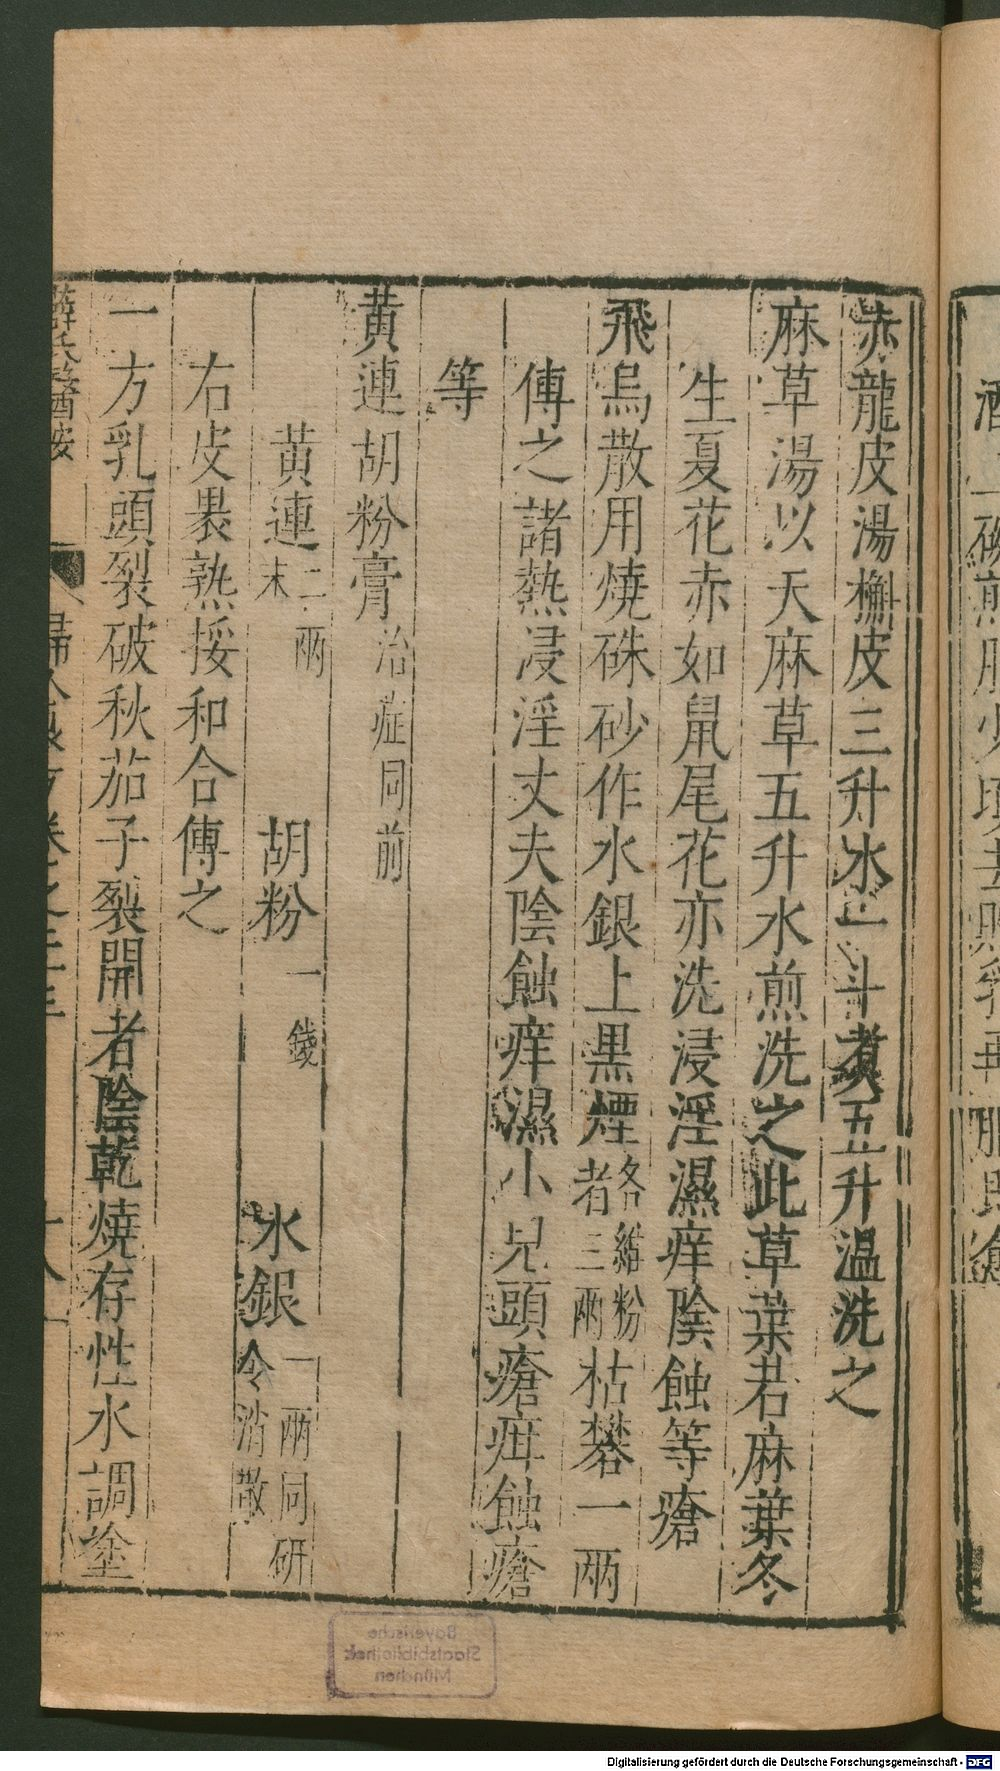 赤龍皮湯槲皮三升水一斗煮五升温洗之
麻草湯以天麻草五升水煎洗之此草葉君麻葉冬
生夏花赤如鼠尾花亦洗浸淫濕痒陰蝕等瘡
飛烏散用燒硃砂作水銀上黑煙者三兩各維粉枯礬一兩
傅之諸熱浸淫丈夫陰蝕痒濕小兒頭瘡疳蝕瘡
等
黄連胡粉膏治症同前
黄連二兩末 胡粉一錢 水銀一兩同研令消散
右皮裹熟挼和合傅之
一方乳頭裂破秋茄子裂開者陰乾燒存性水調塗
薛氏醫按
Bayerische
Staatsbibliothek
München
Digitalisierung gefördert durch die Deutsche Forschungsgemeinschaft - DFG